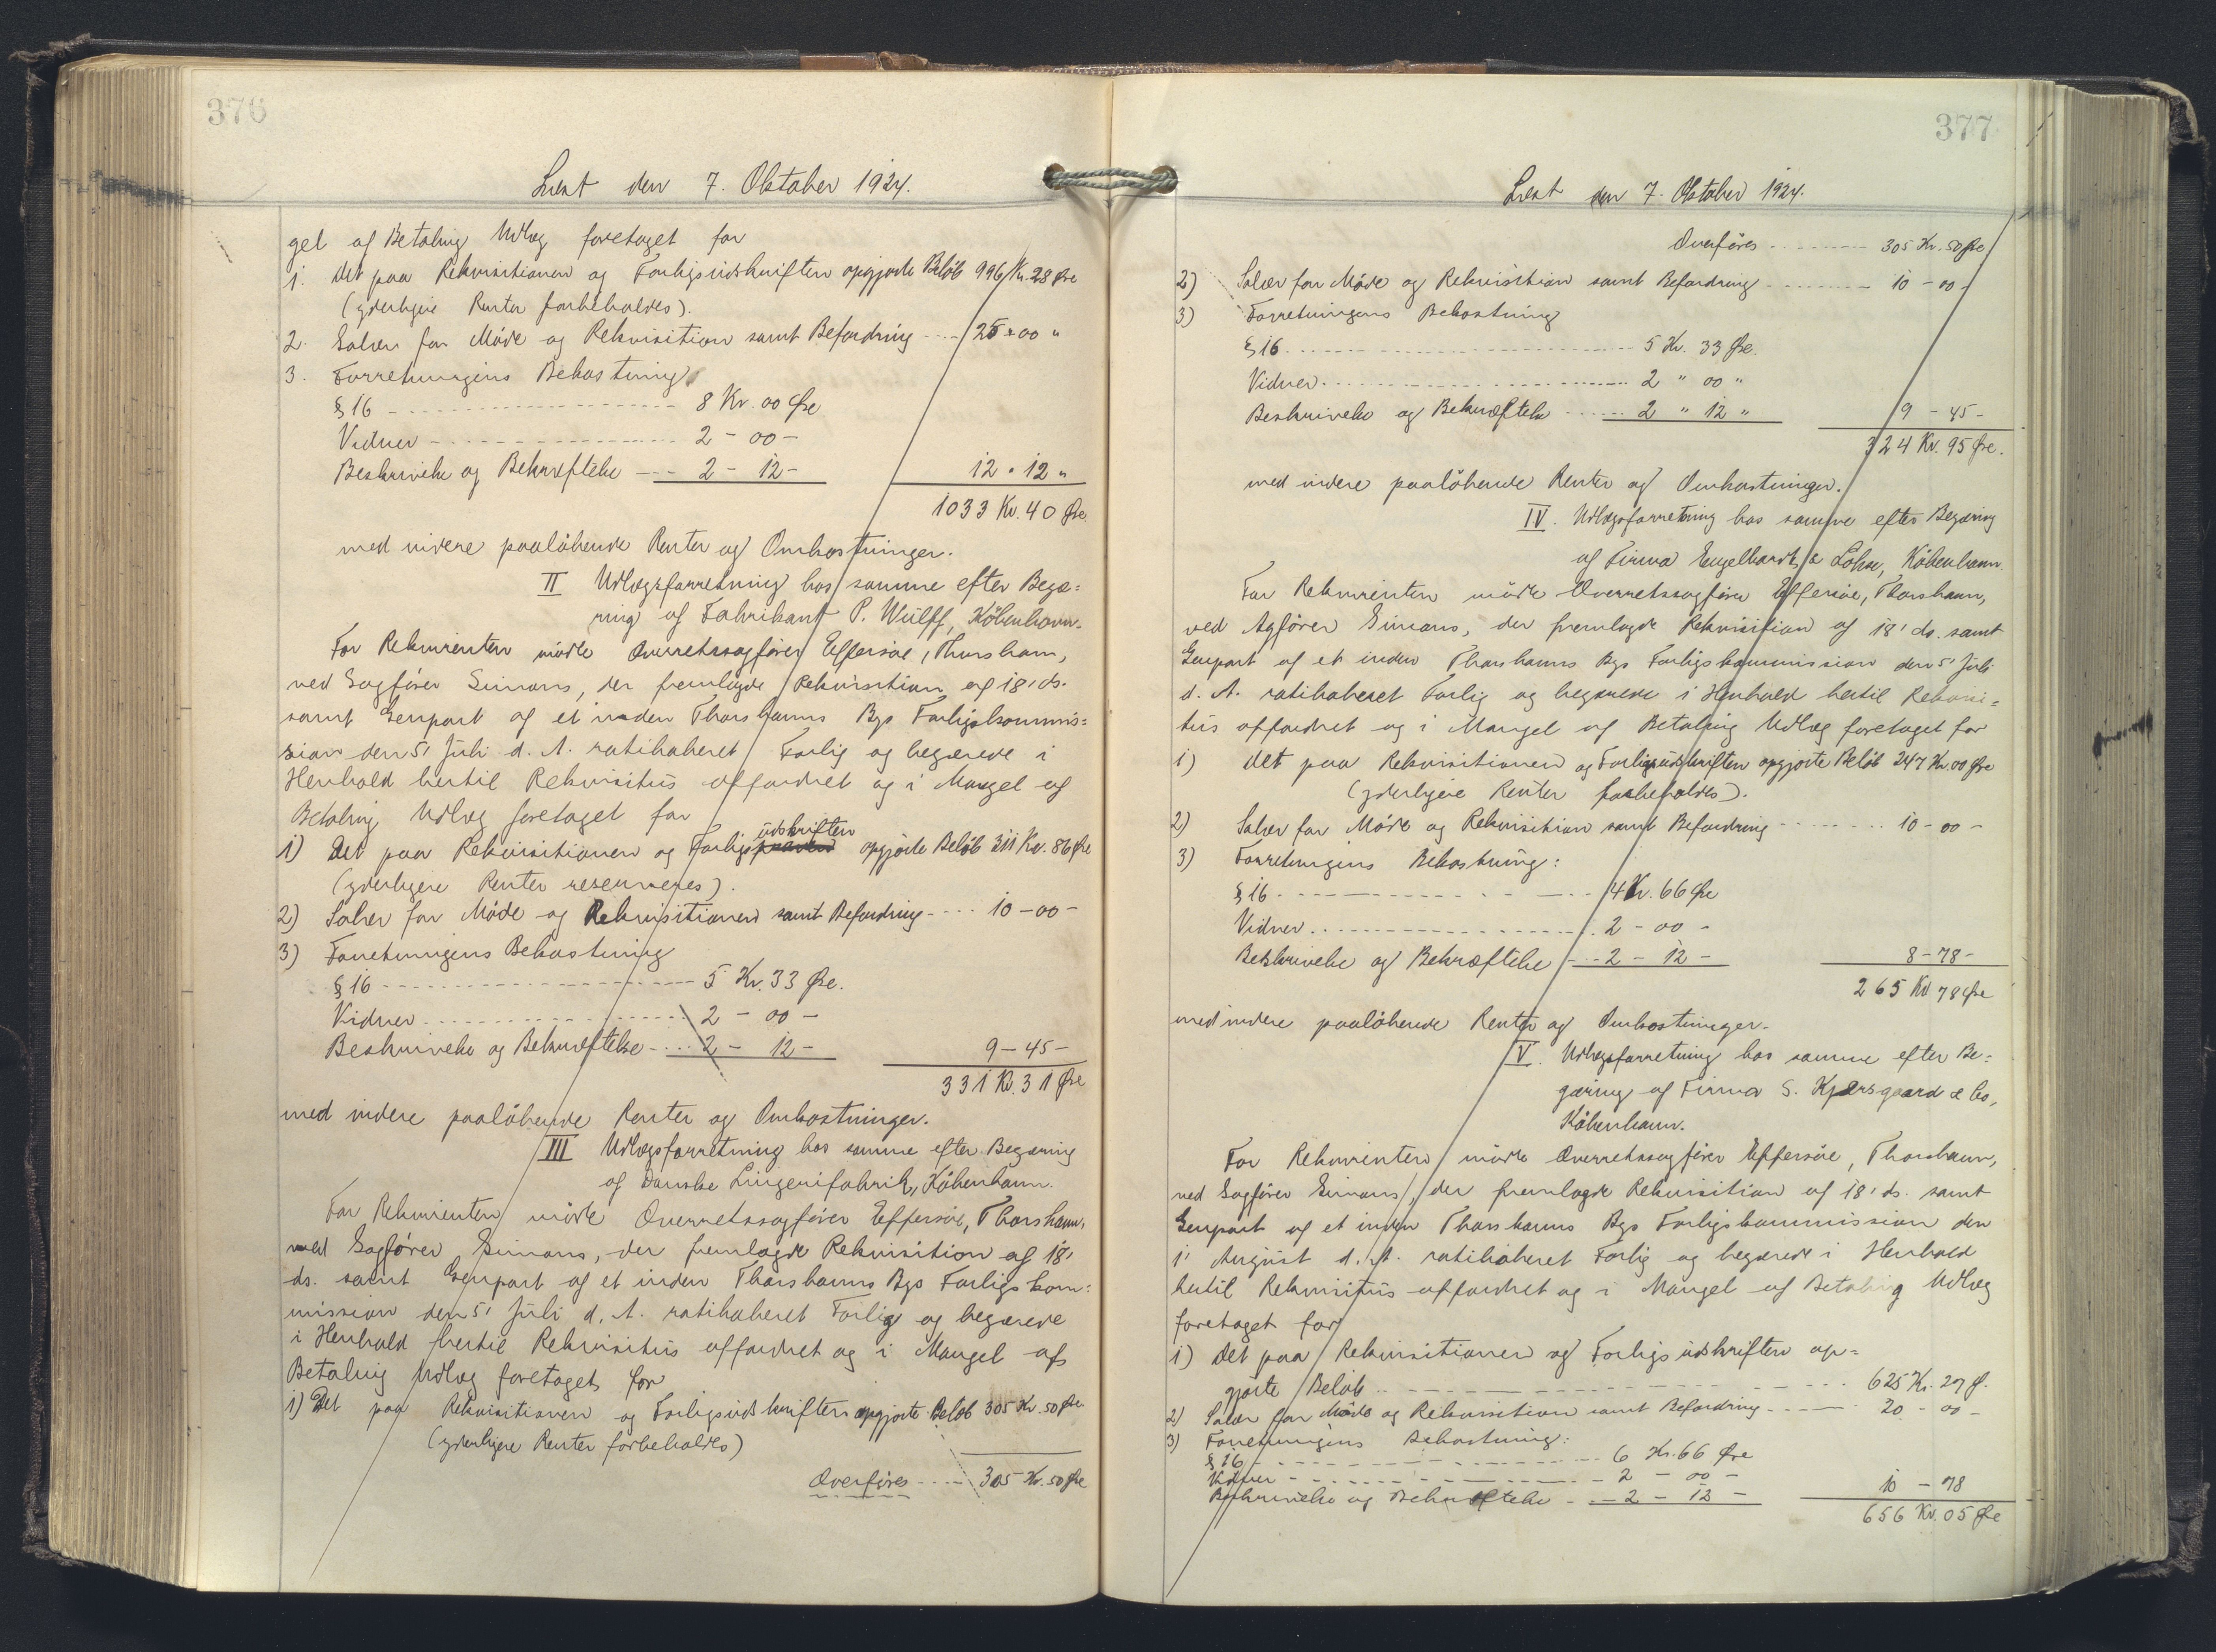 376
Læst den 7. Oktober 1924.
gel af Betaling Udlæg foretaget for
1. Det paa Rekvisitionen og Forligsudskriften opgjorte Beløb 996 Kr. 28 Øre
(yderligere Renter forbeholdes).
2. Salær for Møde og Rekvisition samt Befordring ---- 25 " 00 "
3. Forretningens Bekostning
§ 16 ---- 8 Kr. 00 Øre
Vidner ---- 2 - 00 -
Beskrivelse og Bekræftelse ---- 2 - 12 - 12 " 12 "
1033 Kr. 40 Øre
med videre paaløbende Renter og Omkostninger.
II Udlægsforretning hos samme efter Begæ=
ring af Fabrikant P. Wulff, København.
For Rekvirenten mødte Overretssagfører Effersøe, Thorshavn,
ved Sagfører Simons, der fremlagde Rekvisition af 18' ds.
samt Genpart af et inden Thorshavns Bys Forligskommis=
sion den 5' Juli d. A. ratihaberet Forlig og begærede i
Henhold hertil Rekvisitus opfordret og i Mangel af
Betaling Udlæg foretaget for
1) Det paa Rekvisitionen og Forligsudskriften opgjorte Beløb 311 Kr. 86 Øre
(yderligere Renter reserveres).
2) Salær for Møde og Rekvisitionen samt Befordring ---- 10 - 00 -
3) Forretningens Bekostning
§ 16 ---- 5 Kr. 33 Øre.
Vidner ---- 2 - 00 -
Beskrivelse og Bekræftelse ---- 2 - 12 - 9 - 45 -
331 Kr. 31 Øre
med videre paaløbende Renter og Omkostninger.
III Udlægsforretning hos samme efter Begæring
af Danske Lingerifabrik, København.
For Rekvirenten mødte Overretssagfører Effersøe, Thorshavn,
ved Sagfører Simons, der fremlagde Rekvisition af 18'
ds. samt Genpart af et inden Thorshavns Bys Forligskom=
mission den 5' Juli d. A. ratihaberet Forlig og begærede
i Henhold hertil Rekvisitus opfordret og i Mangel af
Betaling Udlæg foretaget for
1) Det paa Rekvisitionen og Forligsudskriften opgjorte Beløb 305 Kr. 50 Øre
(yderligere Renter forbeholdes)
Overføres ---- 305 Kr. 50 Øre
377
Læst den 7. Oktober 1924.
Overføres ---- 305 Kr. 50 Øre
2) Salær for Møde og Rekvisition samt Befordring ---- 10 - 00 -
3) Forretningens Bekostning
§ 16 ---- 5 Kr. 33 Øre.
Vidner ---- 2 " 00 "
Beskrivelse og Bekræftelse ---- 2 " 12 " 9 - 45 -
324 Kr. 95 Øre.
med videre paaløbende Renter og Omkostninger.
IV. Udlægsforretning hos samme efter Begæring
af Firma Engelhardt & Lohse, København.
For Rekvirenten mødte Overretssagfører Effersøe, Thorshavn,
ved Sagfører Simons, der fremlagde Rekvisition af 18' ds. samt
Genpart af et inden Thorshavns Bys Forligskommission den 5' Juli
d. A. ratihaberet Forlig og begærede i Henhold hertil Rekvisi=
tus opfordret og i Mangel af Betaling Udlæg foretaget for
1) det paa Rekvisitionen og Forligsudskriften opgjorte Beløb 247 Kr. 00 Øre
(yderligere Renter forbeholdes).
2) Salær for Møde og Rekvisition samt Befordring ---- 10 - 00 -
3) Forretningens Bekostning:
§ 16 ---- 4 Kr. 66 Øre
Vidner ---- 2 - 00 -
Beskrivelse og Bekræftelse ---- 2 - 12 - 8 - 78 -
265 Kr 78 Øre
med videre paaløbende Renter og Omkostninger.
V. Udlægsforretning hos samme efter Be=
gæring af Firma S. Kjærsgaard & Co,
København.
For Rekvirenten mødte Overretssagfører Effersøe, Thorshavn,
ved Sagfører Simons, der fremlagde Rekvisition af 18' ds. samt
Genpart af et inden Thorshavns Bys Forligskommission den
1' August d. A. ratihaberet Forlig og begærede i Henhold
hertil Rekvisitus opfordret og i Mangel af Betaling Udlæg
foretaget for
1) Det paa Rekvisitionen og Forligsudskriften op=
gjorte Beløb ---- 625 Kr. 27 Ø.
2) Salær for Møde og Rekvisition samt Befordring ---- 20 - 00 -
3) Forretningens Bekostning:
§ 16 ---- 6 Kr. 66 Øre
Vidner ---- 2 - 00 -
Beskrivelse og Bekræftelse ---- 2 - 12 - 10 - 78
656 Kr. 05 Øre